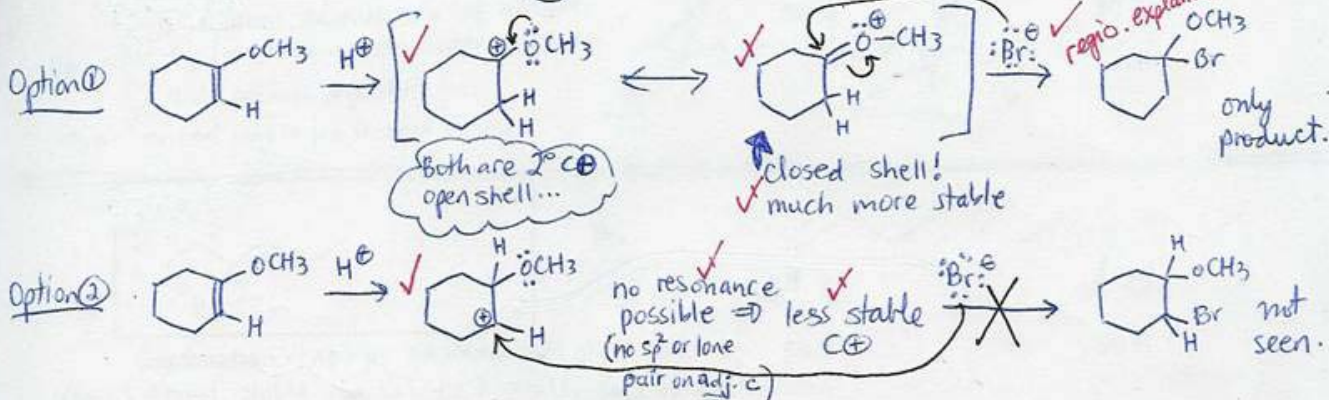 Option ①
OCH3
H
H⊕
⊕
ÖCH3
H
H
⊕
Ö-CH3
H
H
:Br:⊖
regio.
OCH3
Br
only
product.
Both are 2° C⊕
open shell...
closed shell!
much more stable
Option ②
OCH3
H
H⊕
H
ÖCH3
⊕
H
no resonance
possible ⇒ less stable
(no sp² or lone C⊕
pair on adj. C)
:Br:⊖
H
OCH3
Br
H
not
seen.